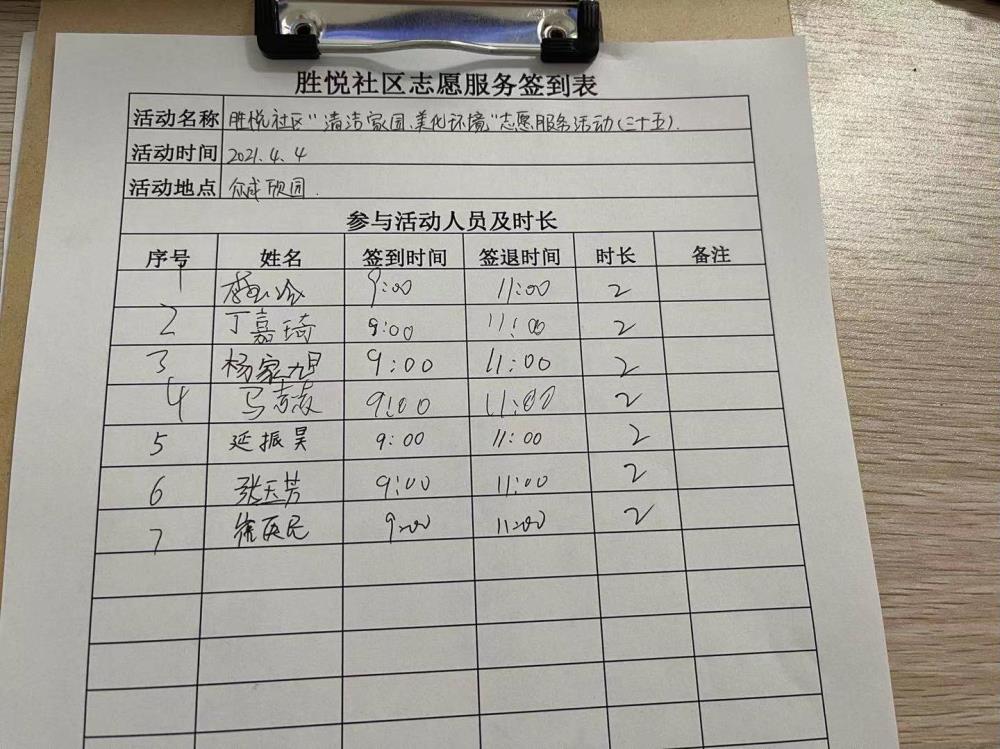 胜悦社区志愿服务签到表
活动名称 胜悦社区"清洁家园、美化环境"志愿服务活动(三十五).
活动时间 2021.4.4
活动地点 众成欣园.
参与活动人员及时长
序号 姓名 签到时间 签退时间 时长 备注
1 9:00 11:00 2
2 丁嘉琦 9:00 11:00 2
3 杨家旭 9:00 11:00 2
4 马志 9:00 11:00 2
5 延振昊 9:00 11:00 2
6 张天芳 9:00 11:00 2
7 民 9:00 11:00 2